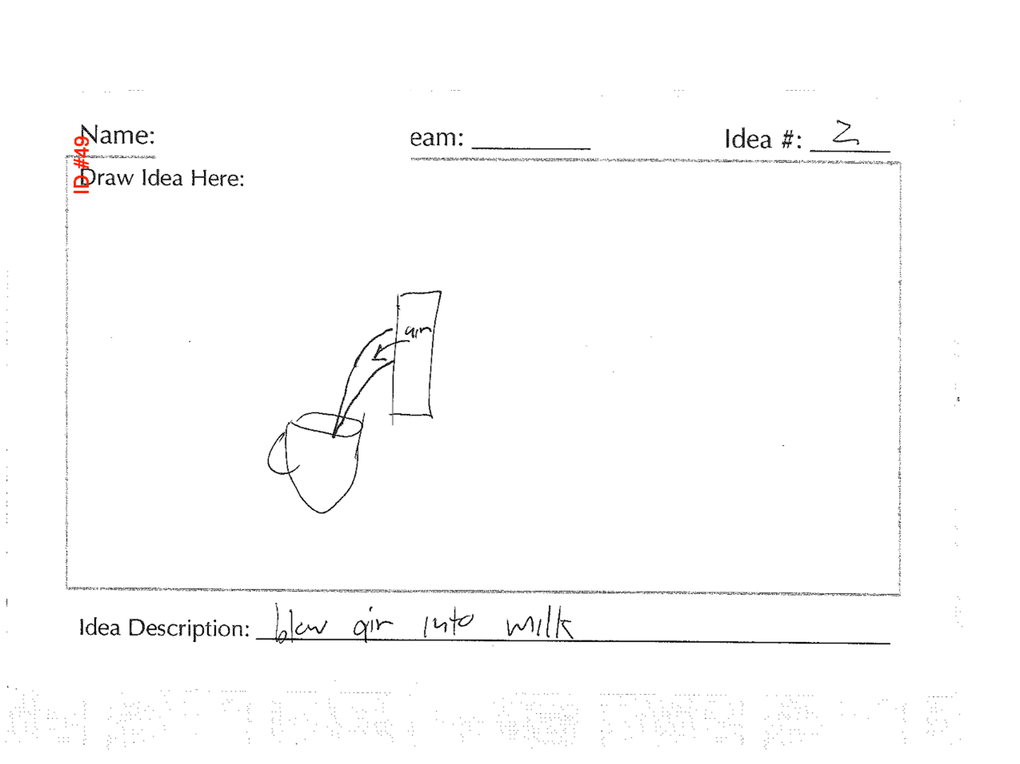 Name: eam: Idea #: 2
ID #49
Draw Idea Here:
air
Idea Description: blow air into milk